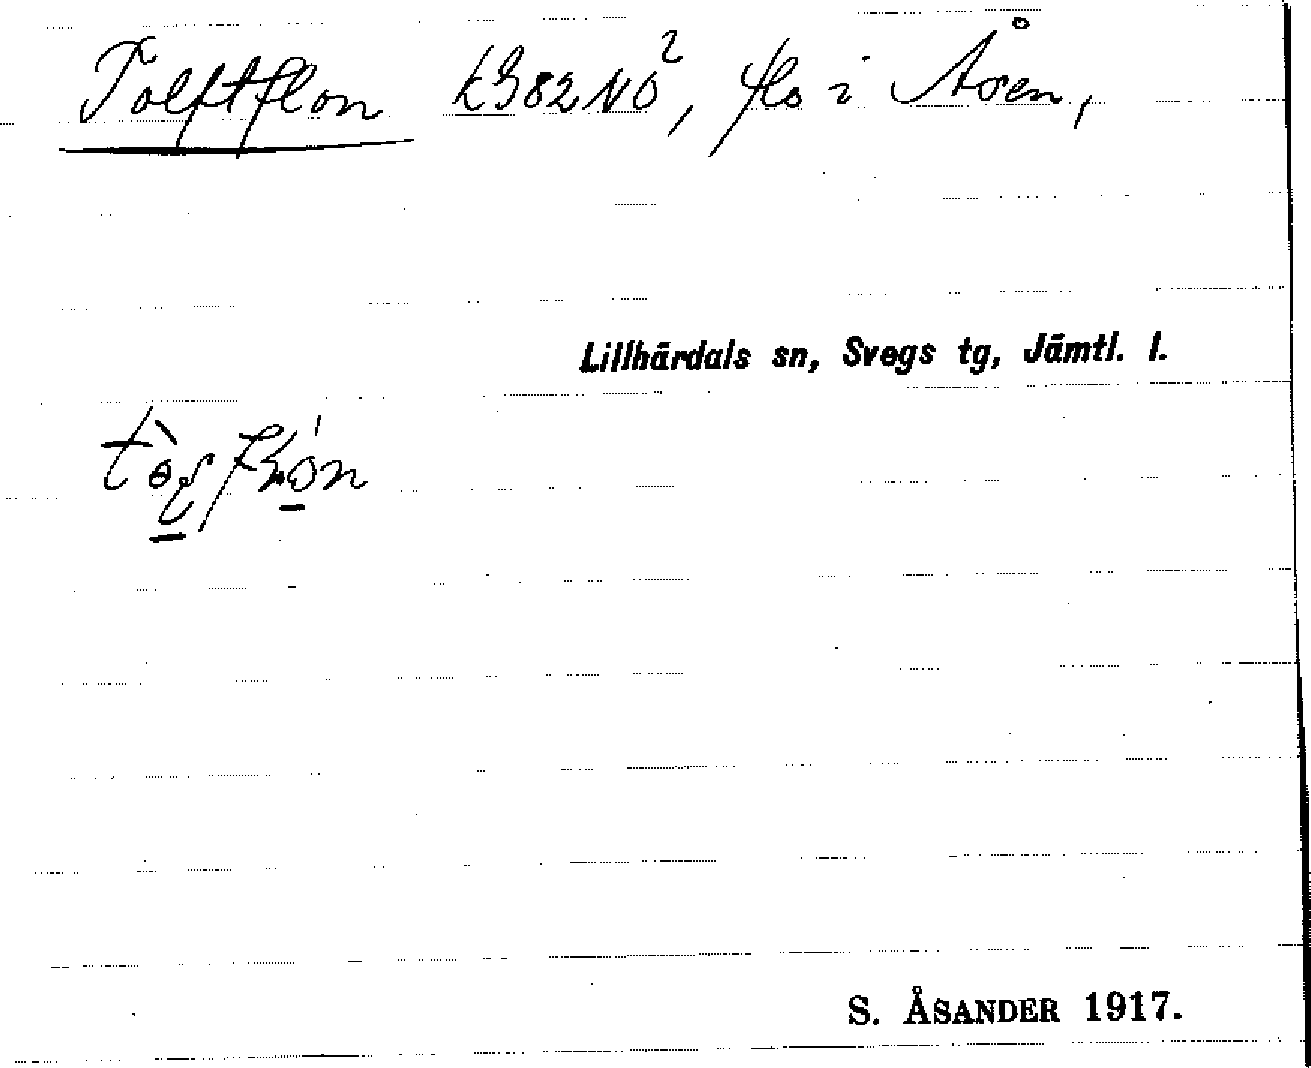 Tolftflon k382NO², flo i Åsen,
Lillhärdals sn, Svegs tg, Jämtl. l.
S. ÅSANDER 1917.